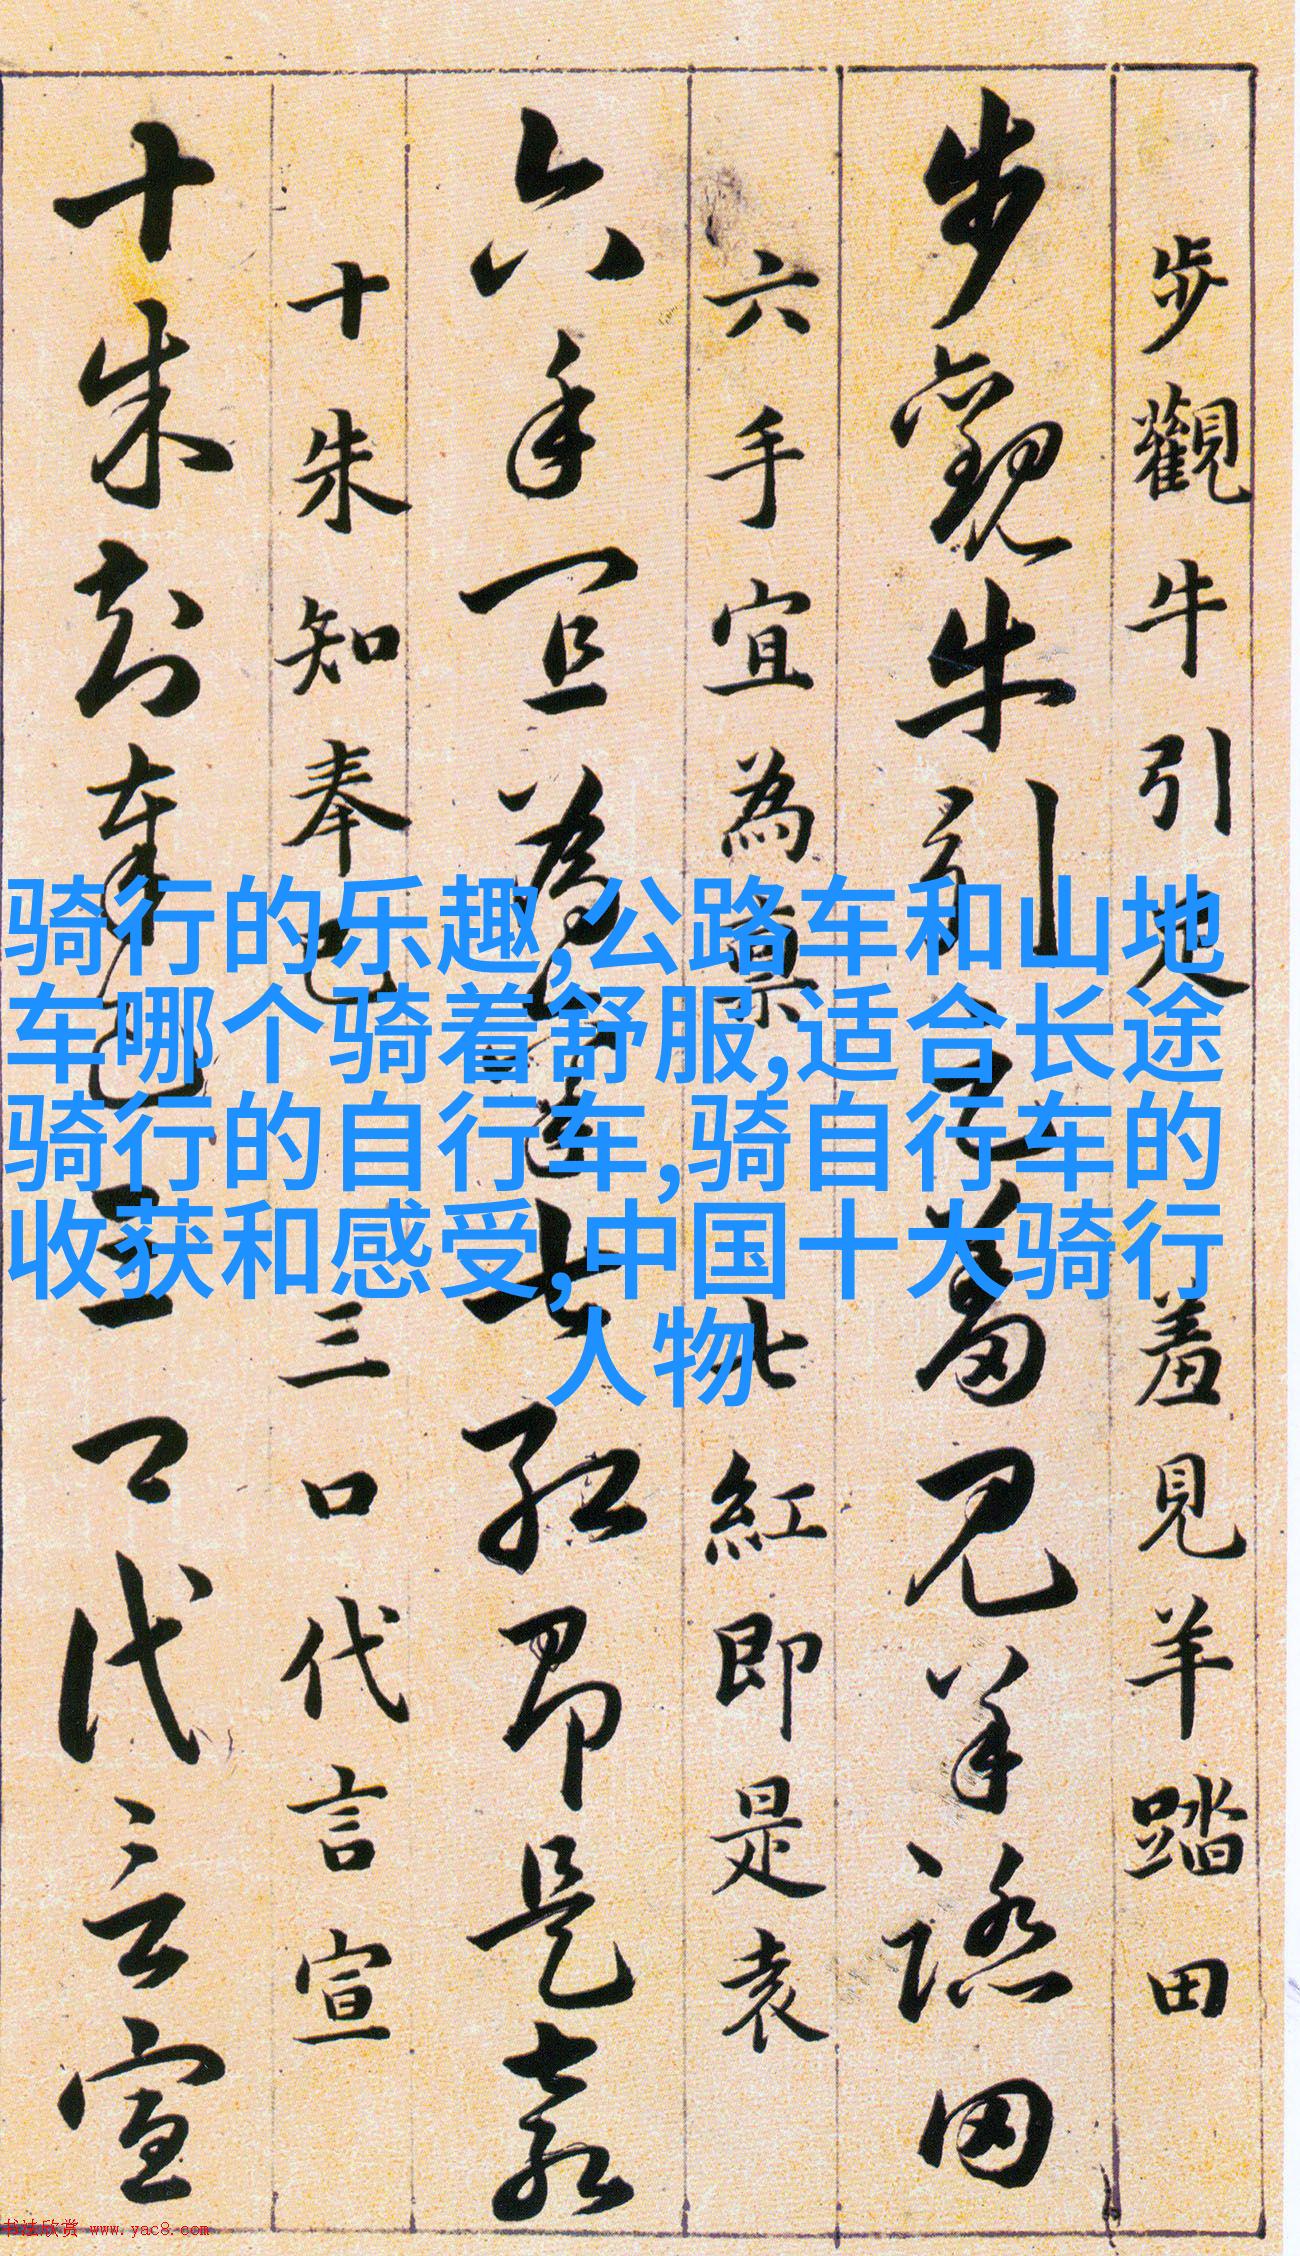 步觀牛引走羞見羊踏田
步觀牛引走羞見羊踏田
六手宜為稟七紅即是袁
六手宜為稟七紅即是袁
十朱知奉已三口代言宣
十朱知奉已三口代言宣
骑行的乐趣,公路车和山地
车哪个骑着舒服,适合长途
骑行的自行车,骑自行车的
收获和感受,中国十大骑行
人物
书法欣赏 www.yac8.com